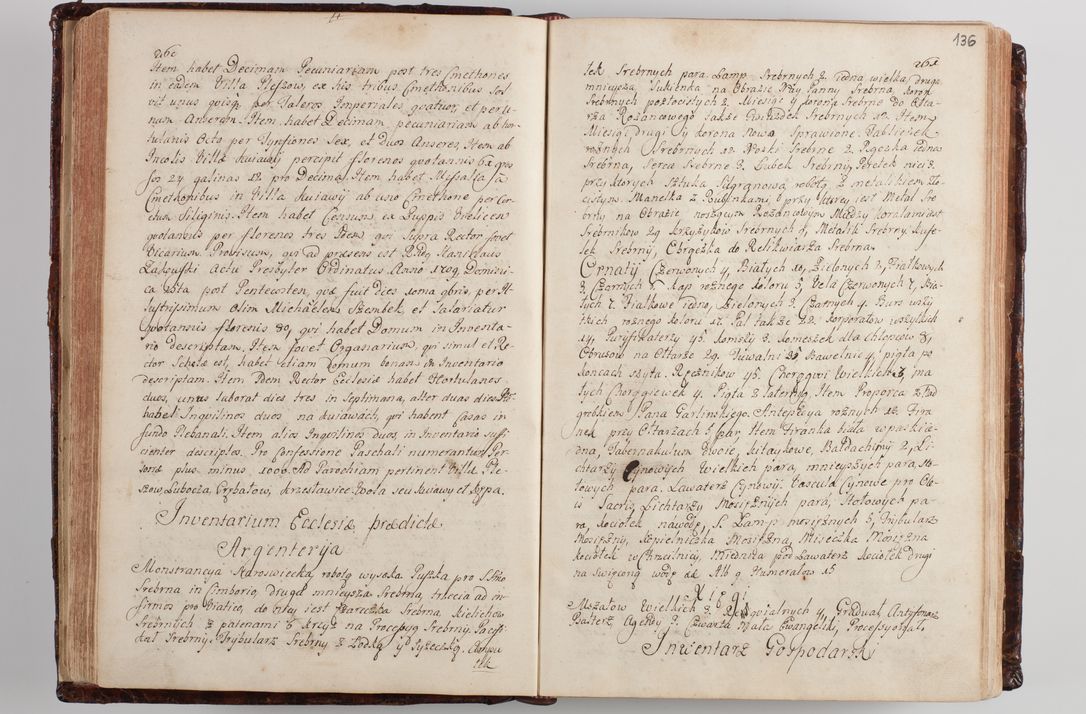 Item habet Decimam Pecuniariam post tres Cmethones
in eadem Villa Pleszow, ex his tribus Cmethonibus Sol
vit unus quisq per Taleros Imperiales quatuor, et per u
num Anserem. Item habet Decimam pecuniariam ab hor
tulanis Octo per Tynfiones Sex, et Duos Anseres, Item ab
Incolis Villæ Kuiawy percipit florenos quotannis 62 gros
sos 24 galinas 12 pro Decima. Item habet Missalia a
Cmethonibus in Villa Kuiawy ab uno Cmethone per Cor
etum Siliginis. Item habet Censum ex Zuppis Vielicen
quotannis per florenos tres Idem qui Supra Rector fovet
Vicarium Provisum, qui ad præsens est Stanislaus
Actu Presbyter Ordinatus Anno 1709 Domini
ca post Pentecosten, quæ fuit dies per Il
lustrissimum Olim Michaelem Szembek, et Salariatur
quotannis florenis 80, qui habet Domum in Inventa
rio descriptam. Item fovet Organarium, qui simul et Re
ctor Scholæ est, habet etiam domum bonam in Inventario
descriptam. Item Idem Rector Ecclesiæ habet Hortulanos
duos, unus laborat dies tres in Septimana, alter duas dies
habet Inquilinos duos na Kuiawach, qui habent Casas in
fundo Plebanali. Item alios Inquilinos duos, in Inventario suffi
cienter descriptos. Pro Confessione Paschali numerantur Per
sonæ plus minus 1000. Ad Parochiam pertinent Villæ Ple
szow, Lubocza, Grybałow, Krzesławice Wola seu Kuiawy et
Inventarium Ecclesiæ prædictæ
Argenterya
Monstrancya Staroswiecka, roboty wysoka Puszka pro
Srebrna in Cimborio, druga mnieysza Srebrna, trzecia ad in
firmos pro Viatico, do ktorey iest Srebrna, Kielichow
Srebrnych 3 patenami 6 krzyz na Processyą Srebrny, Pacifi
kał Srebrny, Trybularz Srebrny z Łodką y Łyżeczką,
tek
136
tek Srebrnych para Lamp Srebrnych 2. iedna wielka, druga
mnieysza Sukienka na Obrazie Nay Panny Srebrna, Koron
Srebrnych pozłocistych 2. Miesiąc y Korona Srebrne do Ołta
rza Rożanowego także Gwiazdek Srebrnych 12. Item
Miesiąc Drugi y Korona Nowa Sprawione. Tabliczek
rożnych Srebrnych 12 Nożki Srebrne 2. Rączka iedna
Srebrna, Serca Srebrne 2. Kubek Srebrny, Perełek nici 2
przy ktorych sztuka filgranowa roboty, z metalikiem zło
cistym, Manelka z Rubinkami, przy ktorey iest Metal Sre
brny na Obrazie noszącym Rożancowym Między koralami iest
Srebrnikow 29 krzyżykow Srebrnych 3, Metalik Srebrny, Kufe
lek Srebrny, Obrączka do Relikwiarza Srebrna.
Ornaty Czerwonych 4, Białych 10, Zielonych 2, Fiałkowych
3 Czarnych 2. kap rożnego koloru 5, Vela Czerwonych 7, Bia
łych 7, Fiałkowe iedno, Zielonych 3. Czarnych 4, Burs wszy
tkich rożnego koloru 17. Pal także 22. Korporałow wszytkich
14, Puryfikaterzy 45 komszy 3 komeszek dla chłopcow 8,
Obrusow na Ołtarze 29. Tuwalni 25 Bawełnic 4, piąta po
koncach szyta. Ręcznikow 45. Chorągwi Wielkich 6, ma
łych Chorągiewek 4. Piąta z taterką, Item Proporca z Nad
grobkiem Pana Garlinskiego. Antepedya rożnych 12 Fira
nek przy Ołtarzach 5 par, Item Firanka biała w paski ie
dna, Tabernakulum dwoie kitaykowe, Baldachimy 2, Li
chtarzy Cynowych Wielkich para, mnieyszych para, sto
łowych para. Lawaterz Cynowy. Vascula Cynowe pro Ole
is Sacris, Lichtarzy Mosiężnych para, Stołowych pa
ra, kociołek na wodę, S. Lamp mosiężnych 5, Trybularz
Mosiężny, Kropielniczka Mosiężna, Miseczka Mosiężna
kociołek w Chrzcilnicy, Miednica pod Lawaterz kociołek drugi
na święconą wodę Alb 9 Humerałow 15
Xięgi
Mszałow Wielkich 3 Rekwialnych 4, Graduał, Antyfonarz
Psałterz Agendy 2. Czwarta Mała Ewangeliki, Processyonał,
Inwentarz Gospodarski